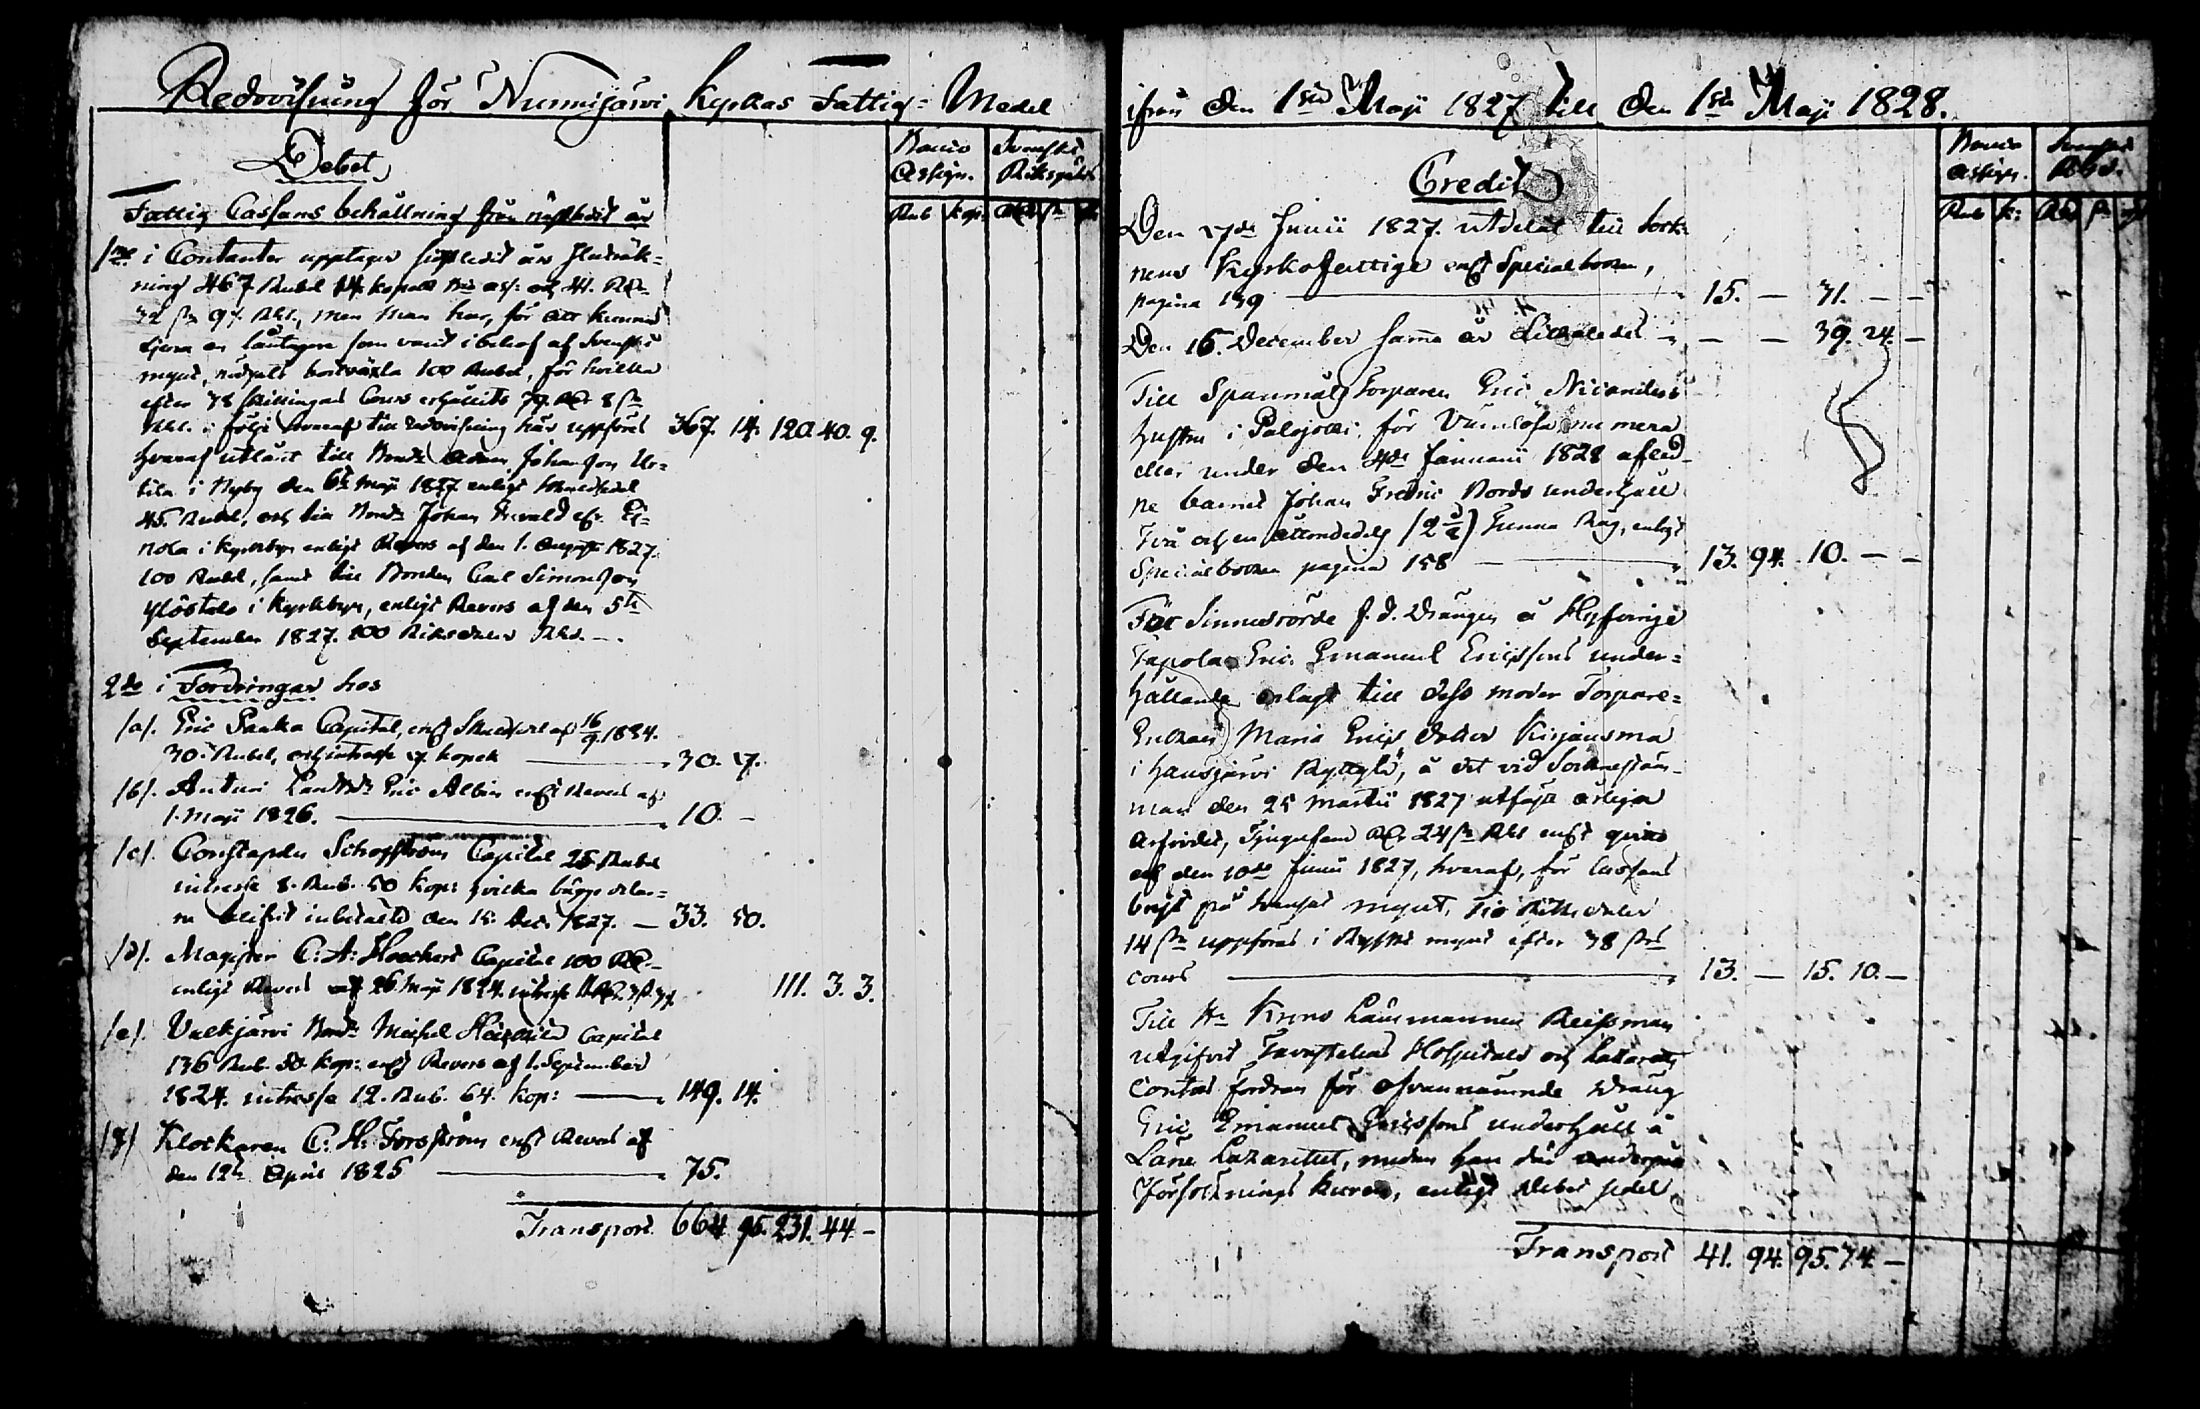 Redovisning för Nummijärvi Kyrkas Fattig-Medel
Debet
Banco Assign. Svenskt Riksgälds
Rub kop. RD
Fattig Cassans behållning från nästledit år
1mo i Contanter upptages sistledit års Sluträk=
ning 467 Rubel 14 kopek Bco ass: och 41. RD
32 sk 9 rst. Rgs., men man har, för att kunna
tjena en låntagare som varit i behof af Svenskt
mynt, nödgats bortväxla 100 Rubel, för hvilka
efter 38 skillingars Cours erhållits 79. RD 8 sk
Rgs. i följe hvaraf till redovisning här uppföres 367. 14. 120. 40. 9.
hvaraf utlånt till Bond. Adam Johansson
i Nyby den 6te Maji 1827 enligt Skuldsedel
45. Rubel, och till Bond. Johan Grevald
nola i Kyrkbyn enligt Revers af den 1. Augusti 1827.
100 Rubel, samt till Bonden Carl Simonsson
Ylöstalo i Kyrkbyn, enligt Revers af den 5te
September 1827. 100 Riksdaler Rgs.
2do i Fordringar hos
/a/. Eric Paaka Capital, enligt Skuldsedel af 16/9. 1824.
30. Rubel, och intresse 7. kopek 30. 7.
/b/. Anturi Landtb. Eric Albin enligt Revers af
1. Maji 1826. 10. —
/c/. Constapeln Capital 25 Rubel
intresse 8. Rub. 50 kop: hvilka bägge delar=
na blifvit inbetalte den 15. Dec. 1827. — 33. 50.
/d/. Magister C: A: Hoeckert Capital 100 RD
enligt Revers af 26 Maji 1824. intresse 11 RD. 3 sk 3 rst. 111. 3. 3.
/e/. Valkjärvi Bond. Michel Heikkilä Capital
136 Rub. 50 kop: enligt Revers af 1. September
1824. intresse 12. Rub. 64 kop: — 149. 14.
/f/ Klockaren C: H: Forsström enligt Revers af
den 12te April 1825 — 75.
Transport 664. 95. 231. 44. —
ifrån den 1sta Maji 1827 till den 1sta Maji 1828.
Credit
Banco Assign. Svenskt Rgs.
Rub k: RD sk
Den 7de Junii 1827. utdelat till Sock=
nens Kyrkofattige enligt Specialboken,
pagina 139 — 15. — 31. — —
Den 16. December samma år Likaledes — — — 39. 24. —
Till Spannmåls Torparen Eric Nicanders
hustru i Palojoki, för vårdlösa numera
eller under den 4de Januarii 1828 afled=
ne barnet Johan Fredric Nords underhåll
Två och en åttondedels Tunna Råg, enligt
Specialboken pagina 158 — 13. 94. 10. — —
För Sinnesrörde f. d. Drängen å Hyfvinge
Tapola Eric Emanuel Ericssons under=
hållande erlagt till dess moder Torpare=
Enkan Maria Ericsdotter
i Hausjärvi Ryttylä, å det vid Sockneståm=
man den 25 Martii 1827 utfäste årliga
arfvodet, Tjugufem RD 24 sk Rgs enligt qvitto
af den 10de Junii 1827, hvaraf, för Cassans
brist på Svenskt mynt, Tio Riksdaler
14 sk uppföres i Ryskt mynt efter 38 sks
cours — 13. — 15. 10. —
Till Hr Krono Länsmannen Reissman
utgifvit Tavastehus Hospitals och Lazaretts
Contos fordran för ofvannämnde Dräng
Eric Emanuel Ericssons underhåll å
Läne Lazarettet, medan han der undergick
försöknings kuren, enligt Debet sedel
Transport 41. 94. 95. 74. —